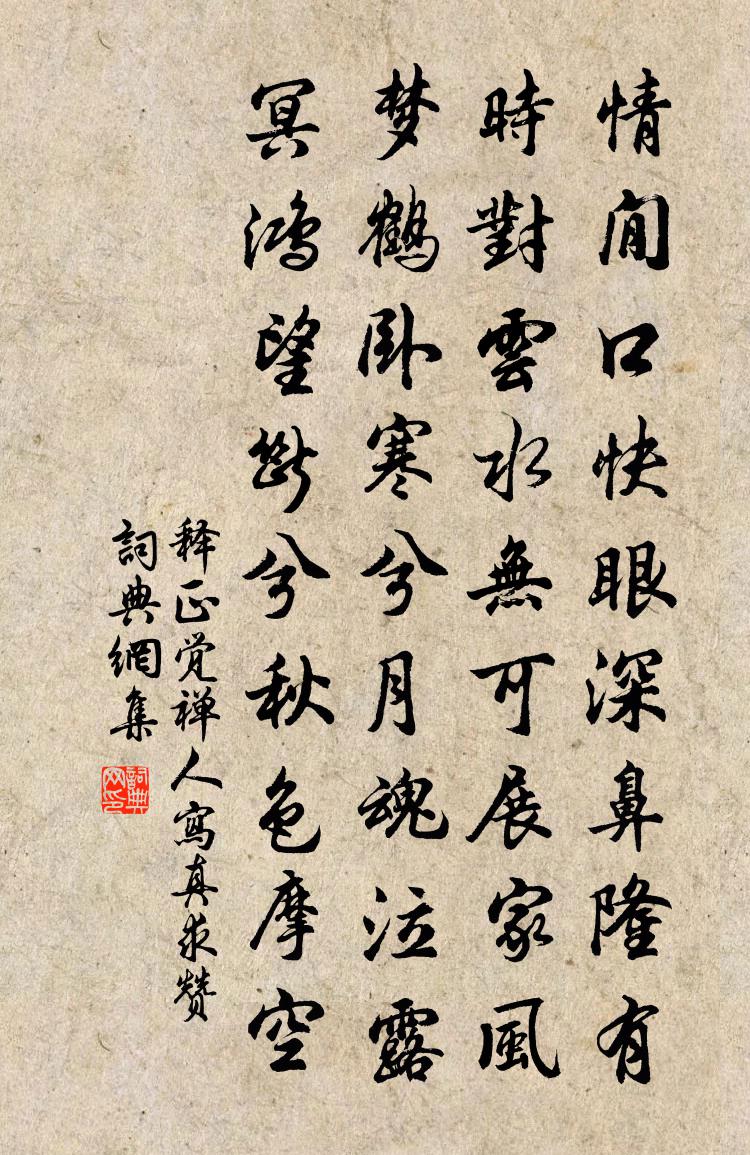 情閒口快眼深鼻隆有
時對雲水無可展家風
梦鶴卧寒兮月魂泣露
冥鴻望断兮秋色摩空
释正觉禅人寫真求贊
詞典網集
詞典网印